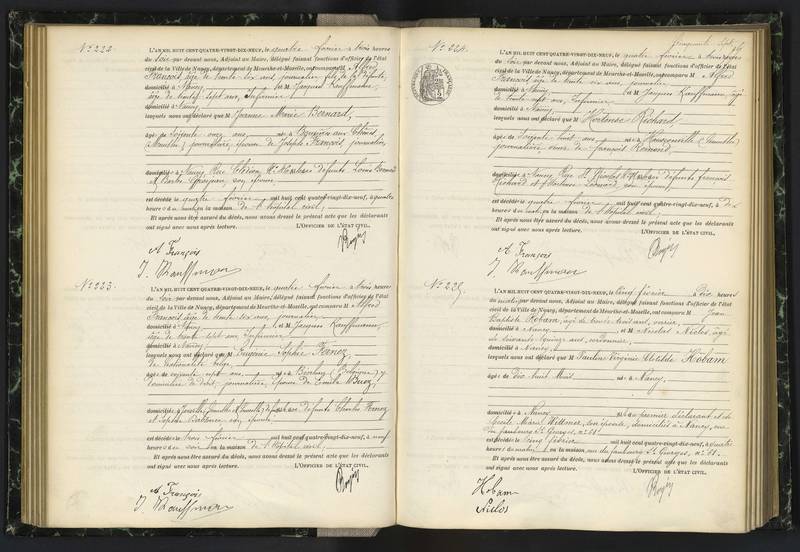 No. 222.
L'AN MIL HUIT CENT QUATRE-VINGT-DIX-NEUF, le quatre février à trois heures
du soir par devant nous, Adjoint au Maire, délégué faisant fonctions d'officier de l'état
civil de la Ville de Nancy, département de Meurthe-et-Moselle, ont comparu M Alfred
François, âgé de trente six ans, journalier, fils de la défunte,
domicilié à Nancy, et M Jacques Kauffmann,
âgé de trente sept ans, Infirmier
domicilié à Nancy,
lesquels nous ont déclaré que Jeanne Marie Bernard,
âgée de soixante onze ans, née à
(Meurthe), journalière, épouse de Joseph François, journalier,
domiciliée à Nancy, Rue défunts Louis Bernard
et Barbe son épouse
est décédée le quatre février mil huit cent quatre-vingt-dix-neuf, à quatre
heures du en la maison de l'hôpital civil,
Et après nous être assuré du décès, nous avons dressé le présent acte que les déclarants
ont signé avec nous après lecture. L'OFFICIER DE L'ÉTAT CIVIL,
A François
J. Kauffmann
No. 223.
L'AN MIL HUIT CENT QUATRE-VINGT-DIX-NEUF, le quatre février à trois heures
du soir par devant nous, Adjoint au Maire, délégué faisant fonctions d'officier de l'état
civil de la Ville de Nancy, département de Meurthe-et-Moselle, ont comparu M Alfred
François, âgé de trente six ans, journalier
domicilié à Nancy, et M Jacques Kauffmann,
âgé de trente sept ans, Infirmier
domicilié à Nancy,
lesquels nous ont déclaré que M Eugénie Sophie
de nationalité belge,
âgée de soixante sept ans, née à (Belgique) y
domiciliée de droit, journalière, épouse de Emile
domiciliée à Jarville, (Meurthe et Moselle) défunts Charles
et Sophie son épouse
est décédée le trois février mil huit cent quatre-vingt-dix-neuf, à neuf
heures du soir en la maison de l'hôpital civil,
Et après nous être assuré du décès, nous avons dressé le présent acte que les déclarants
ont signé avec nous après lecture. L'OFFICIER DE L'ÉTAT CIVIL,
A François
J. Kauffmann
cinquante sept
No. 224.
L'AN MIL HUIT CENT QUATRE-VINGT-DIX-NEUF, le quatre février à trois heures
du soir par devant nous, Adjoint au Maire, délégué faisant fonctions d'officier de l'état
civil de la Ville de Nancy, département de Meurthe-et-Moselle, ont comparu M Alfred
François, âgé de trente six ans, journalier
domicilié à Nancy, et M Jacques Kauffmann, âgé
de trente sept ans, Infirmier
domicilié à Nancy,
lesquels nous ont déclaré que M Hortense Richard
âgée de soixante huit ans, née à (Meurthe)
journalière, veuve de François
domiciliée à Nancy, Rue St Nicolas défunts François
Richard et son épouse
est décédée le quatre février mil huit cent quatre-vingt-dix-neuf, à
heures du matin en la maison de l'hôpital civil,
Et après nous être assuré du décès, nous avons dressé le présent acte que les déclarants
ont signé avec nous après lecture. L'OFFICIER DE L'ÉTAT CIVIL,
A François
J. Kauffmann
No. 225.
L'AN MIL HUIT CENT QUATRE-VINGT-DIX-NEUF, le cinq février à dix heures
du matin par devant nous, Adjoint au Maire, délégué faisant fonctions d'officier de l'état
civil de la Ville de Nancy, département de Meurthe-et-Moselle, ont comparu M Jean
Baptiste Hobam, âgé de trente huit ans,
domicilié à Nancy et M Nicolas Niclos, âgé
de soixante quinze ans, cordonnier,
domicilié à Nancy,
lesquels nous ont déclaré que M Pauline Virginie Clotilde Hobam
âgée de dix huit mois née à Nancy,
domiciliée à Nancy du premier déclarant et de
Cécile Marie Wittmer, son épouse, domiciliés à Nancy, rue
du faubourg St Georges, no. 68
est décédée le cinq février mil huit cent quatre-vingt-dix-neuf, à quatre
heures du matin, en la maison, rue du faubourg St Georges, no. 68.
Et après nous être assuré du décès, nous avons dressé le présent acte que les déclarants
ont signé avec nous après lecture. L'OFFICIER DE L'ÉTAT CIVIL,
Hobam
Niclos